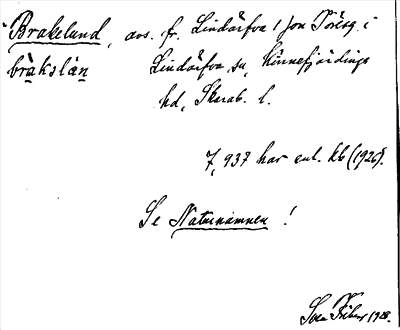 Brakelund, avs. fr. Lindärfva 1 Jon Torsg. i
bràkslàn Lindärfva sn, Kinnefjärdings
hd, Skarab. l.
7,937 har enl. kb (1926).
Se Naturnamnen!
1928.